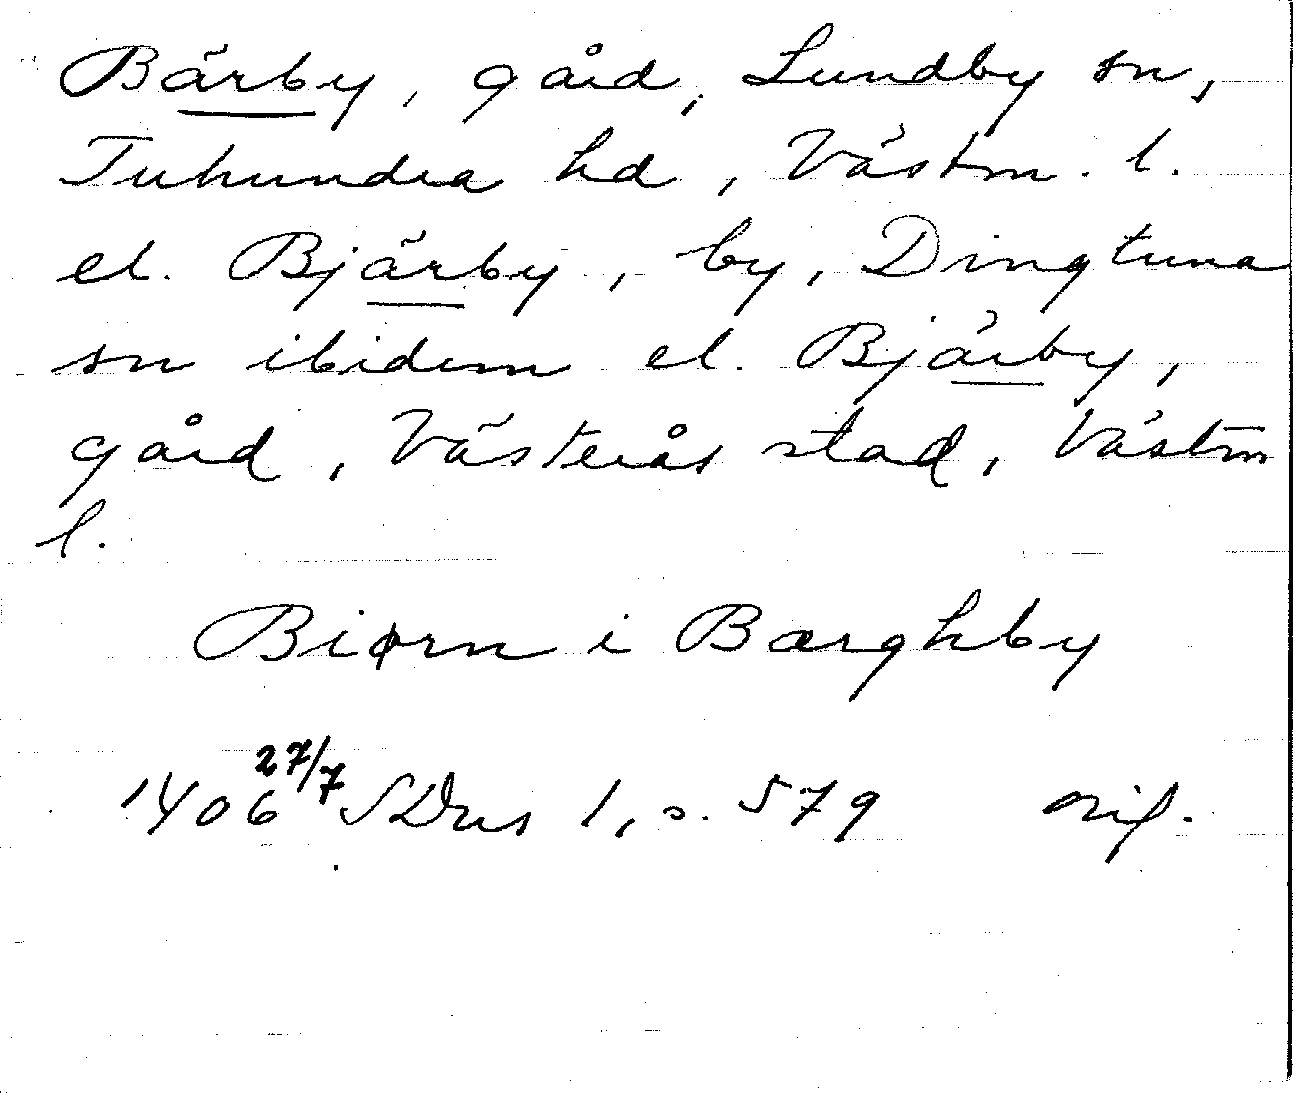 Bärby, gård, Lundby sn,
Tuhundra hd, Västm. l.
el. Bjärby, by, Dingtuna
sn ibidem el. Bjärby,
gård, Västerås stad, Västm
l.
Biørn i Bærghby
1406 27/7 SDns 1, s. 579 orig.